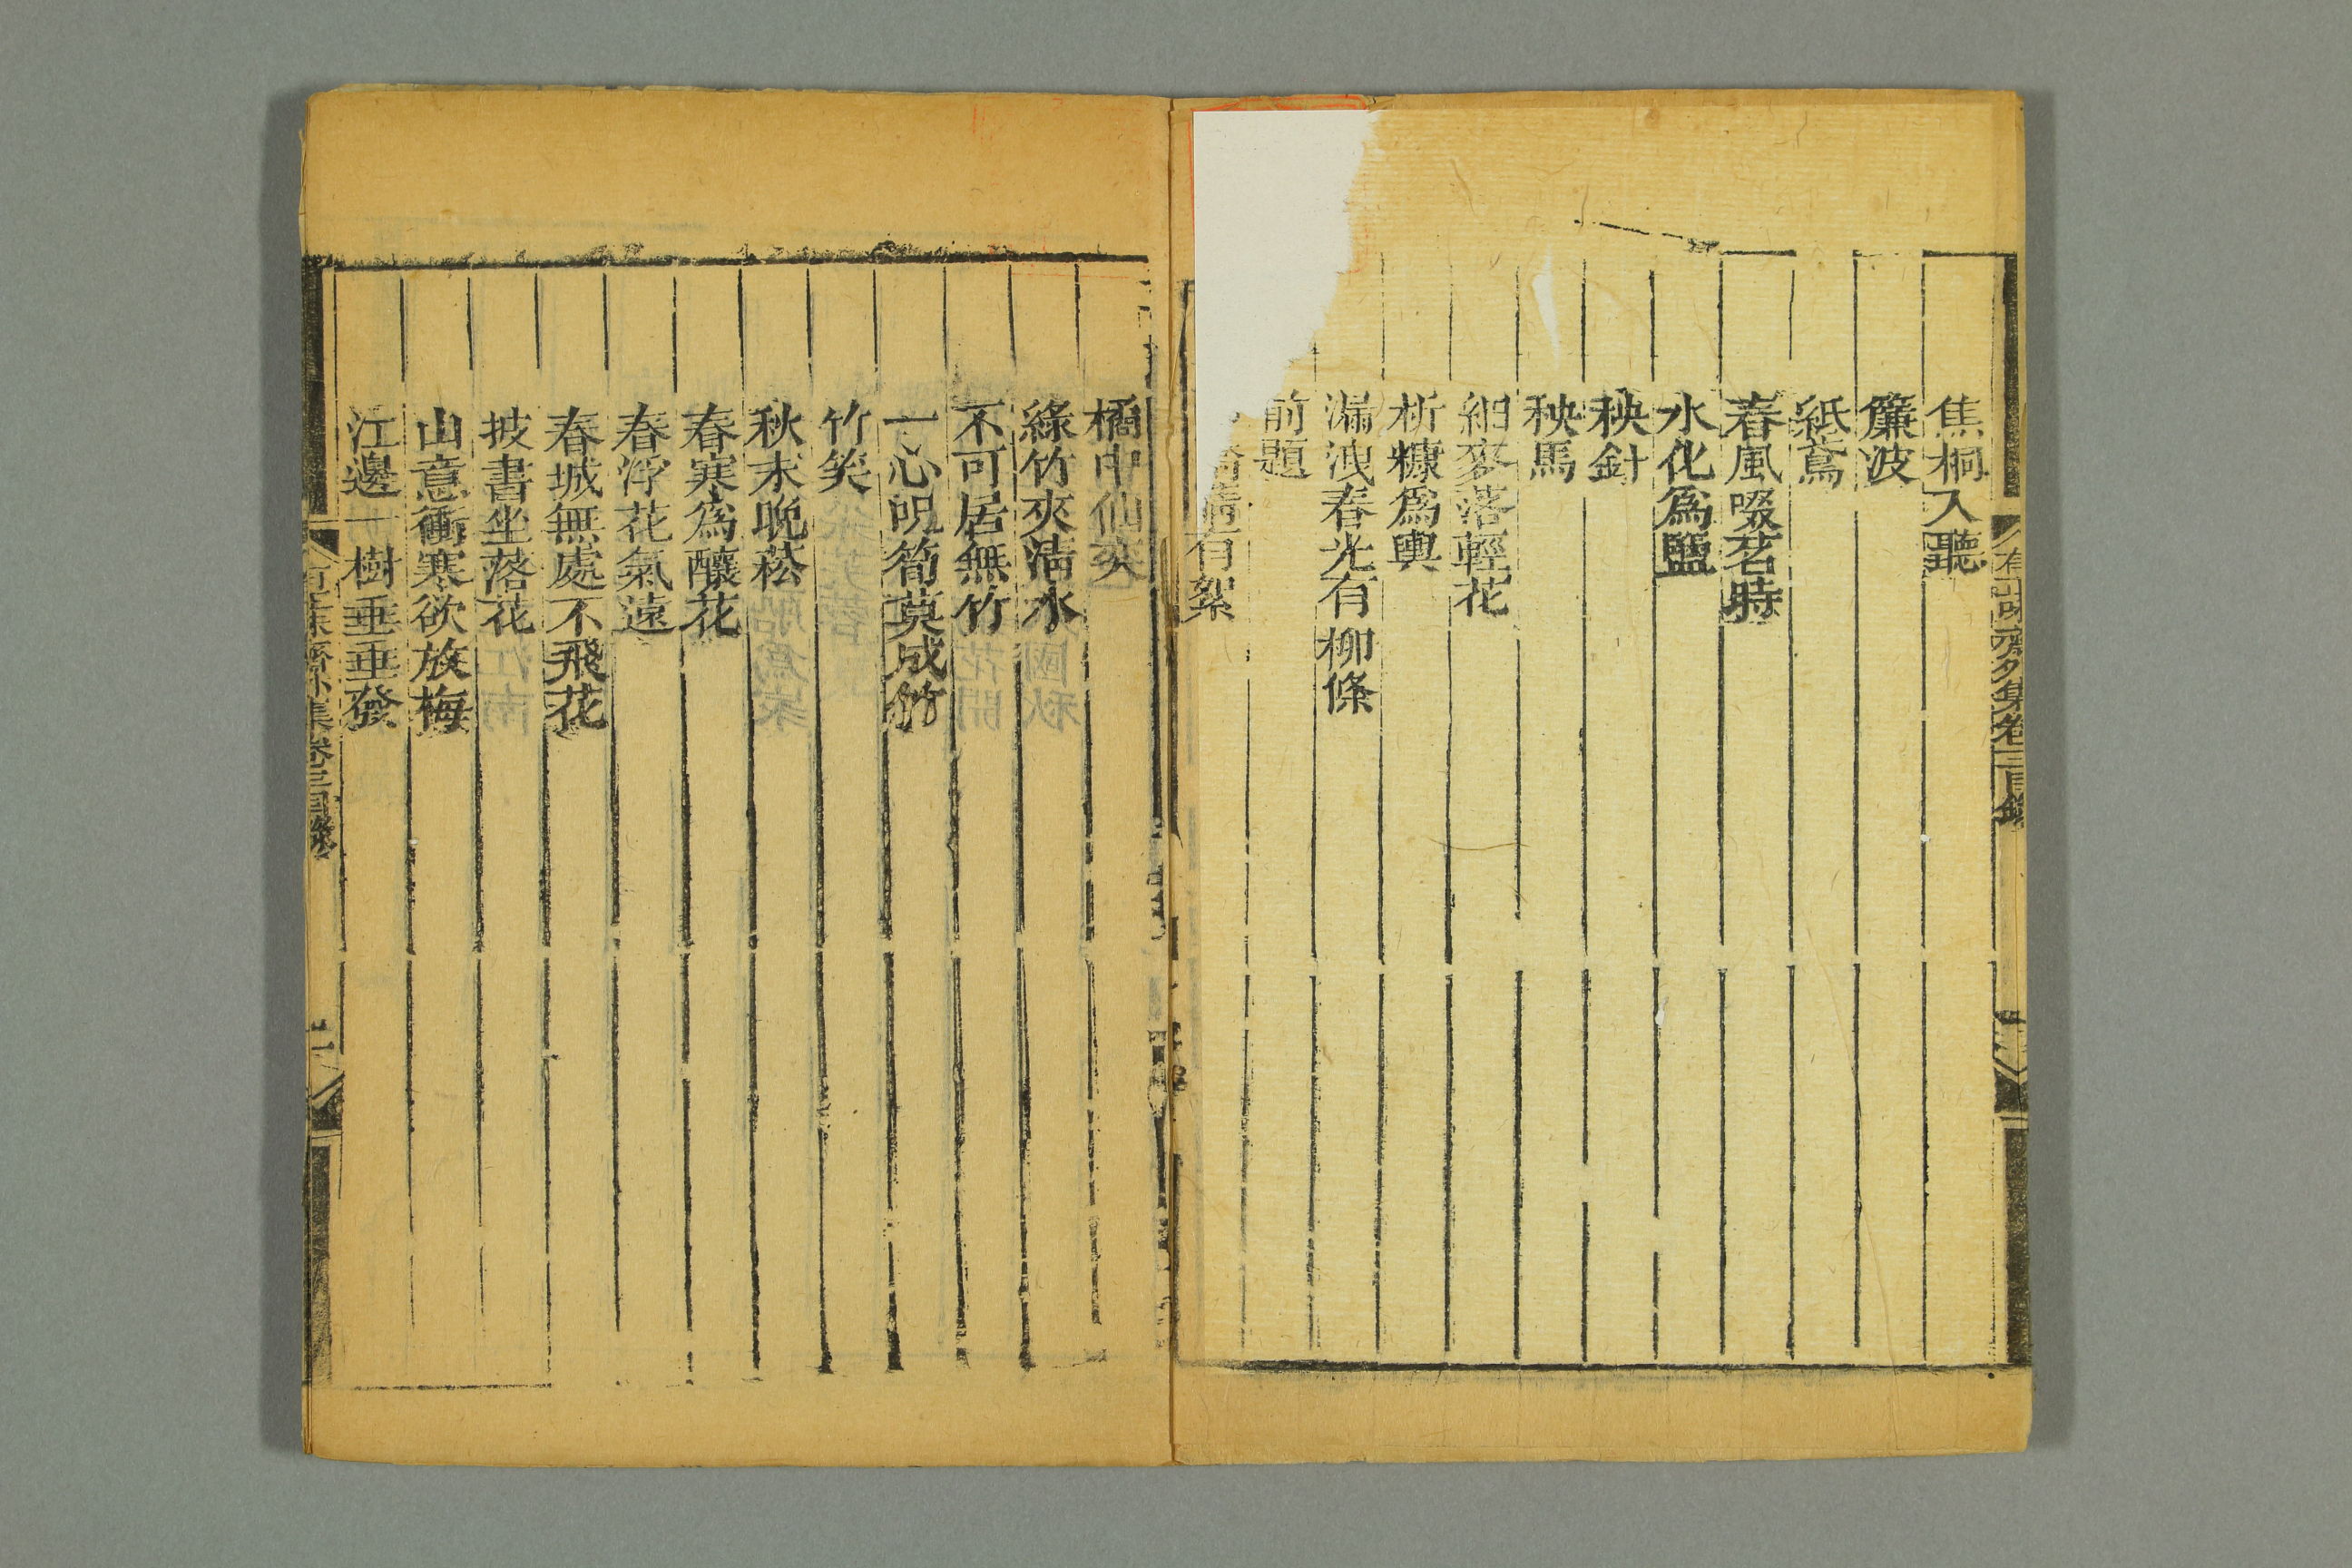 焦桐入聽
簾波
紙鳶
春風啜茗時
水化爲鹽
秧針
秧馬
細麥落輕花
析糠爲輿
漏洩春光有柳條
前題
有絮
橘中仙奕
綠竹夾淸水
不可居無竹
一心呪筍莫成竹
竹笑
秋末晚菘
春寒爲釀花
春浮花氣遠
春城無處不飛花
披書坐落花
山意衝寒欲放梅
江邊一樹垂垂發
集卷三目錄